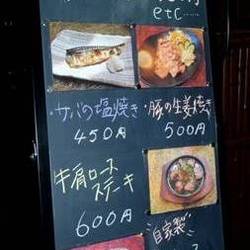 etc……
・サバの塩焼き
450円
・豚の生姜焼き
500円
牛肩ロース
ステーキ
600円
自家製